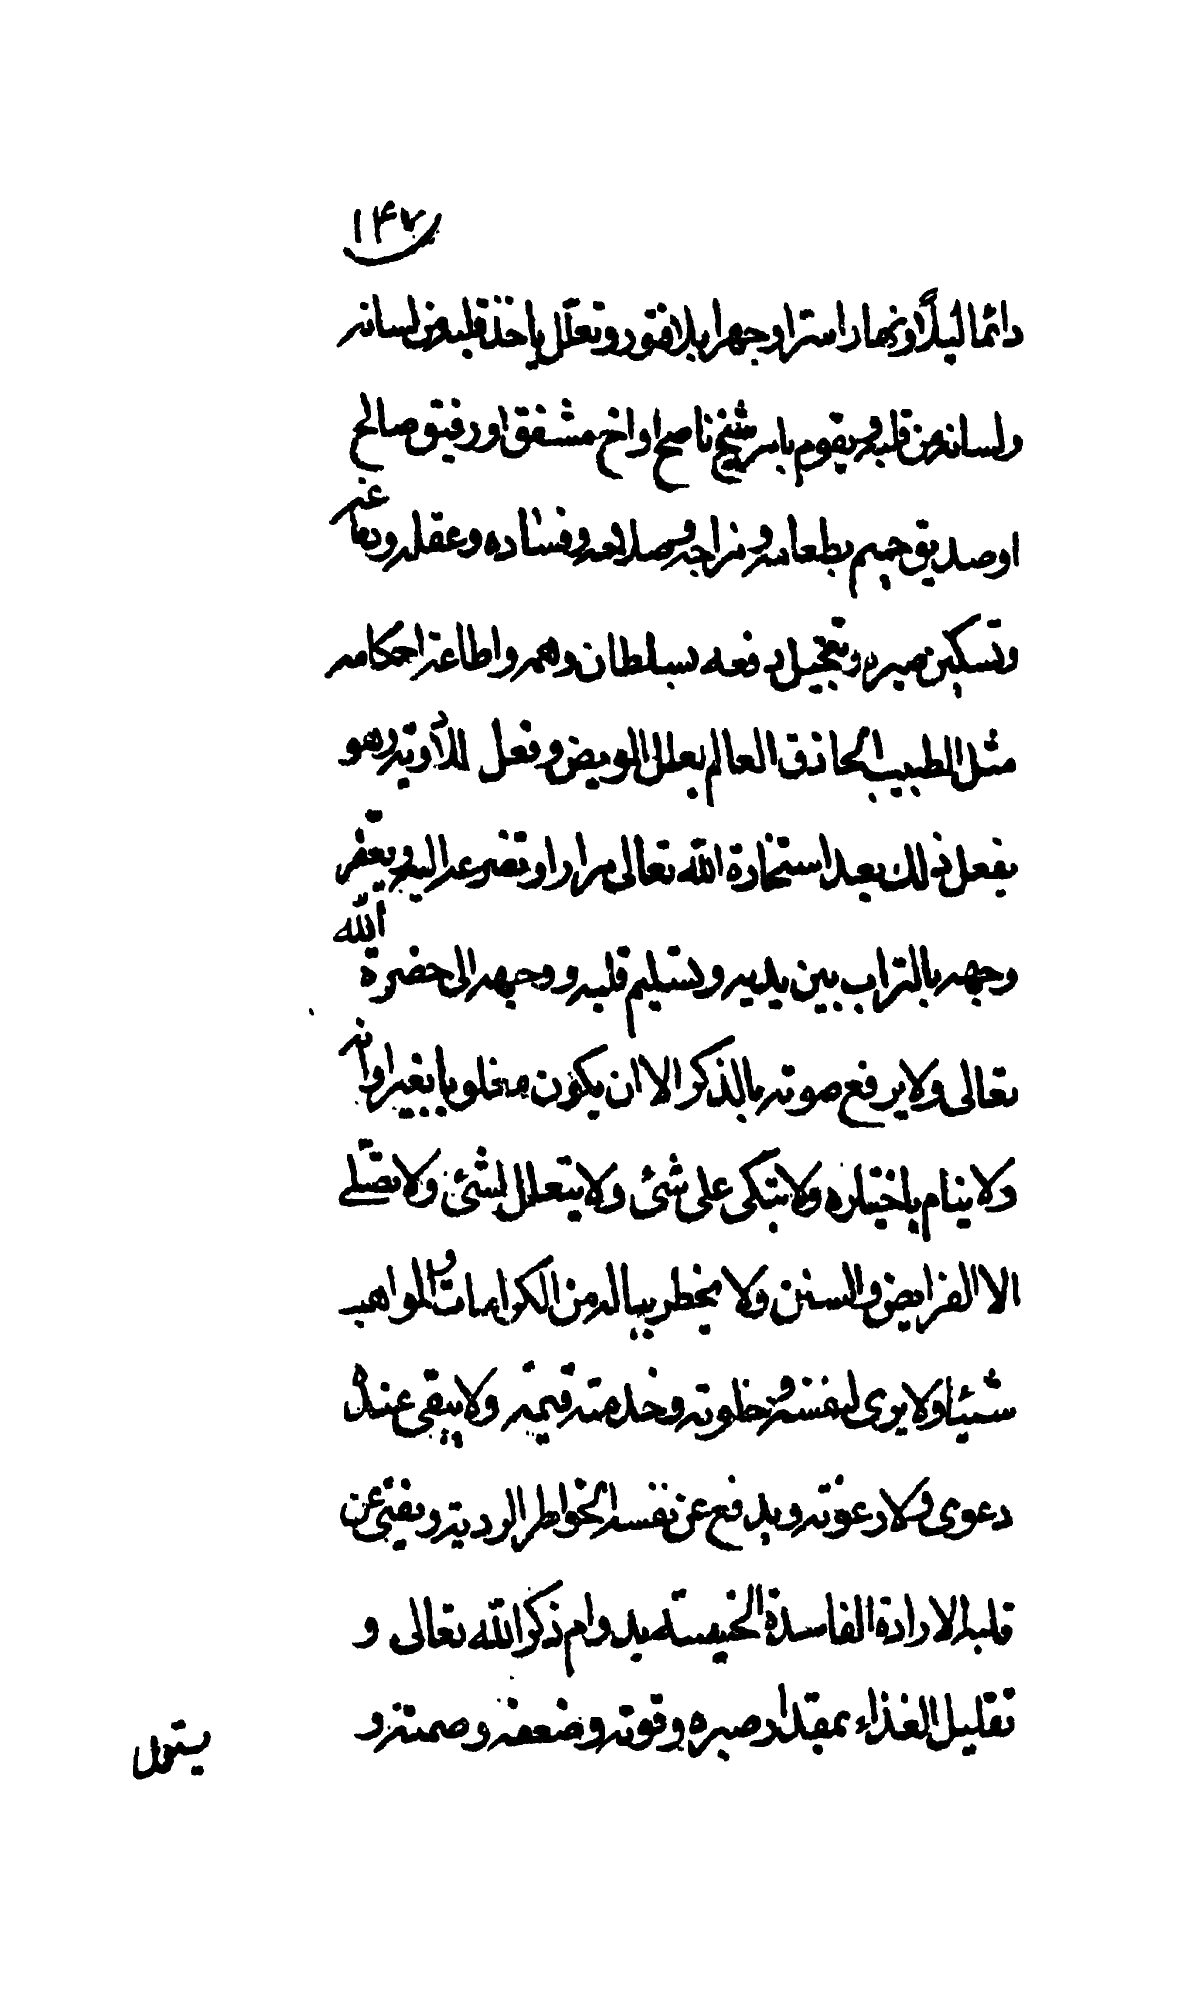 ۱۴۷
دائما ليلا ونهارا سترا وجهرا بلا فتور وتعلل ياخذ قلبه من لسانه
ولسانه من قلبه ويقوم بامر شيخ ناصح او اخ مشفق او رفيق صالح
او صديق حميم بطعامه ومزاجه وصلاحه وفساده وعقله ودماغه
وتسكين صبره وتخييل دفعه بسلطان وهمه واطاعة احكامه
مثل الطبيب الحاذق العالم بعلل المريض وفعل الادويه وهو
يفعل ذلك بعد استخارة الله تعالى مرارا وتضرعه اليه وتعفر
وجهه بالتراب بين يديه وتسليم قلبه ووجهه الى حضرة الله
تعالى ولا يرفع صوته بالذكر الا ان يكون مغلوبا بغير اوانه
ولا ينام باختياره ولا يتكى على شئ ولا يتعلل لشئ ولا يصلي
الا الفرايض والسنن ولا يخطر بباله من الكرامات والمواهب
شيئا ولا يرى لنفسه وخلوته وخدمته قيمة ولا يبقى عنده
دعوى ولا رعونة ويدفع عن نفسه الخواطر الردية وينفي عن
قلبه الارادة الفاسدة الخسيسة بدوام ذكر الله تعالى و
تقليل الغذاء بمقدار صبره وقوته وضعفه وصمته و
يستعمل